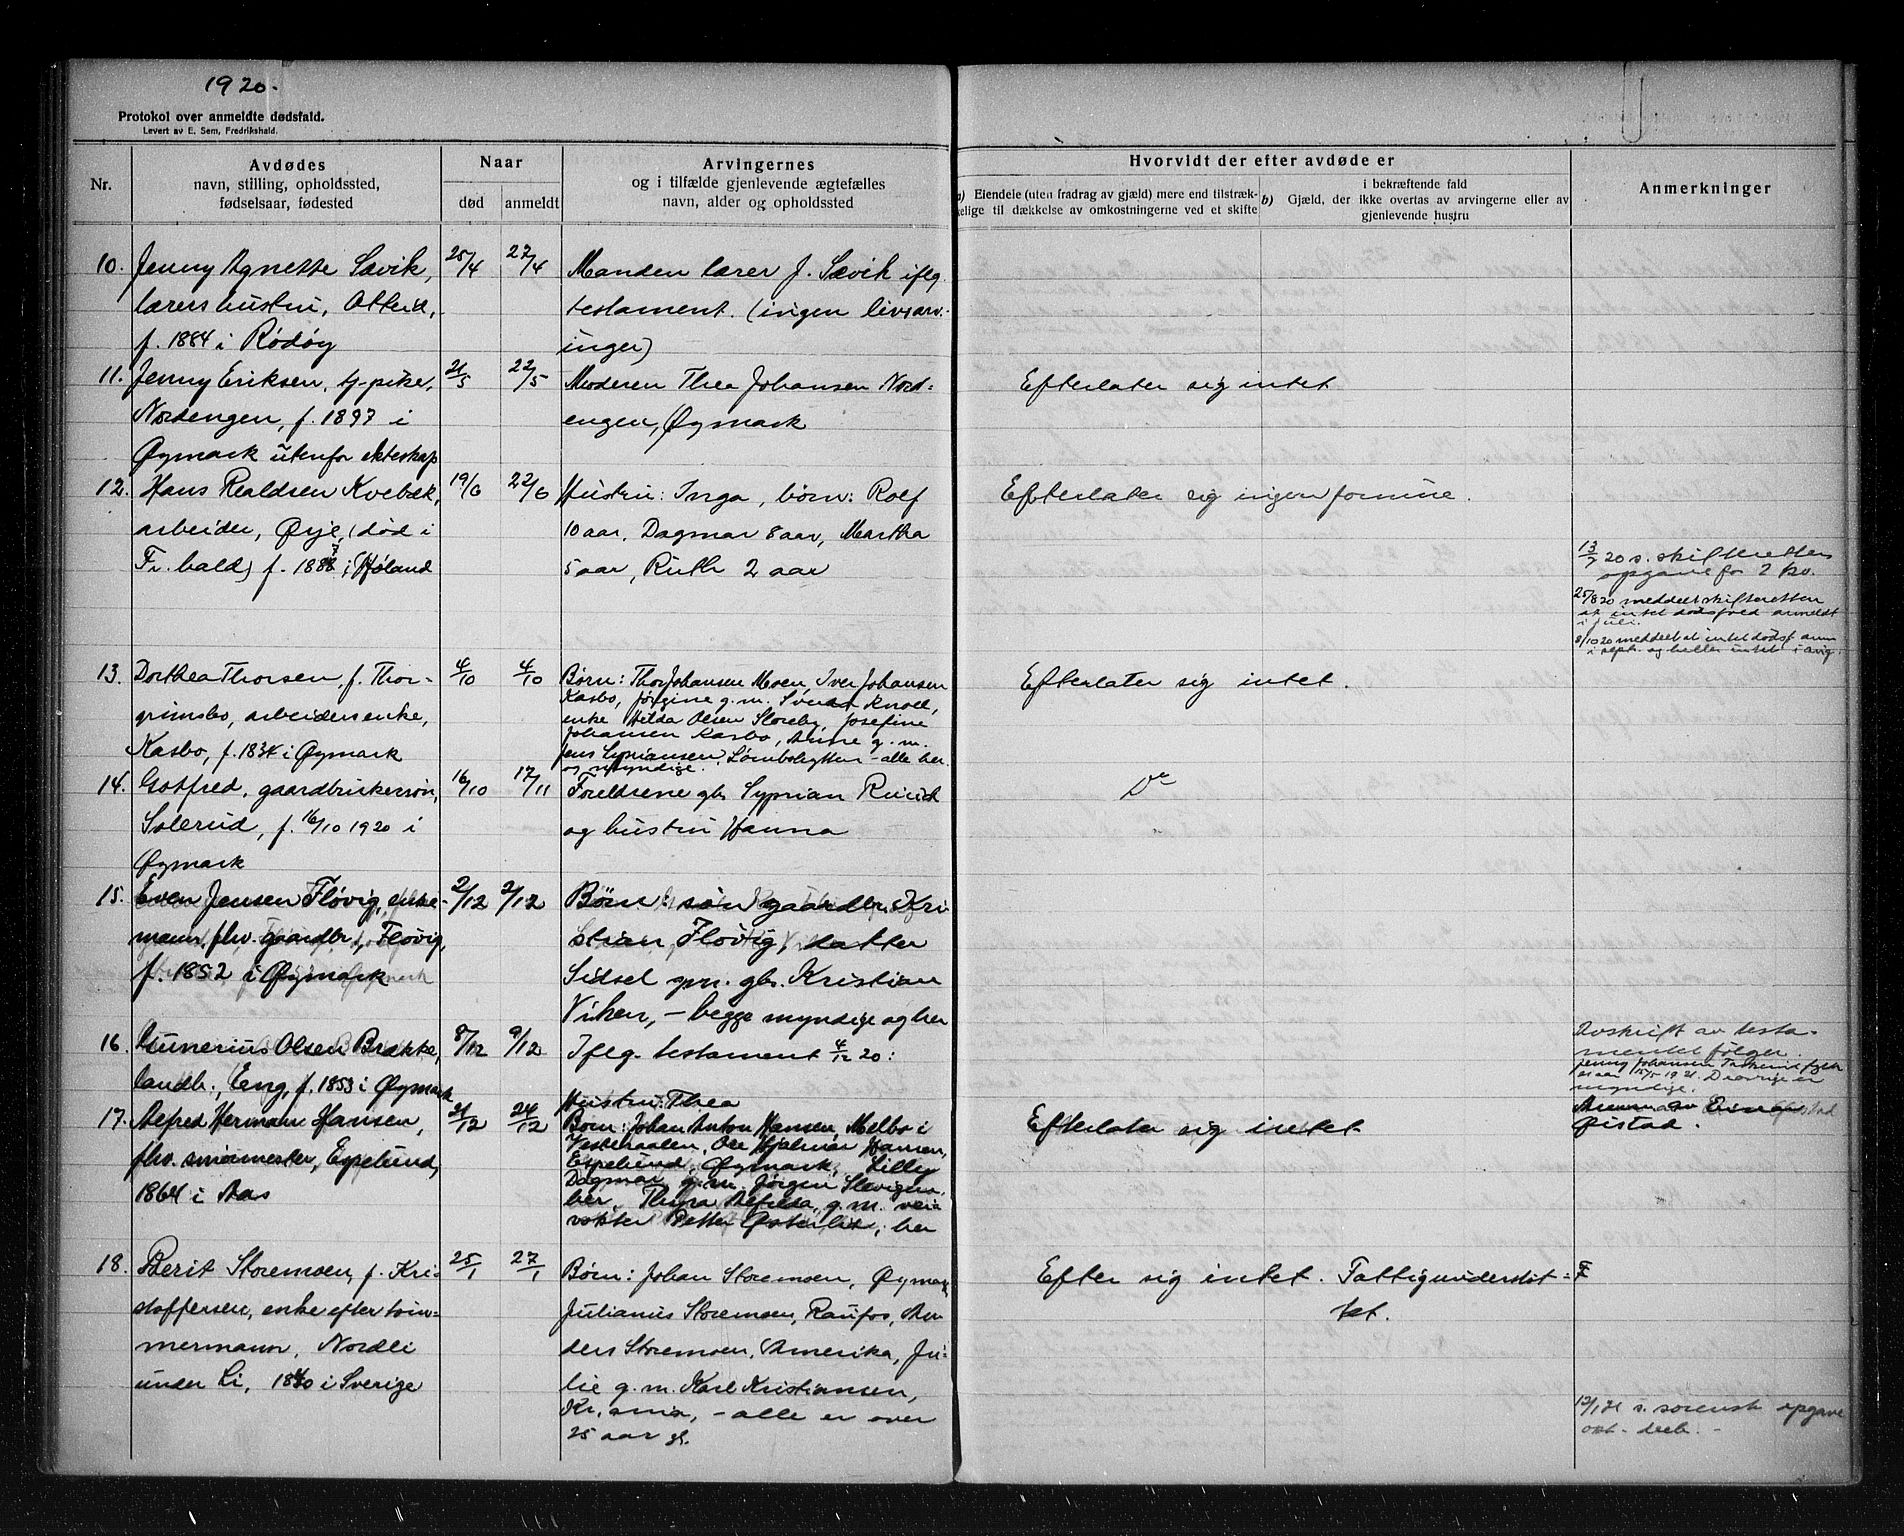 1920.
Protokol over anmeldte dødsfald.
Levert av E. Sem, Fredrikshald.
Nr.
Avdødes
navn, stilling, opholdssted,
fødselsaar, fødested
Naar
død
anmeldt
Arvingernes
og i tilfælde gjenlevende ægtefælles
navn, alder og opholdssted
Hvorvidt der efter avdøde er
a) Eiendele (uten fradrag av gjæld) mere end tilstræk-
kelige til dækkelse av omkostningerne ved et skifte
i bekræftende fald
b) Gjæld, der ikke overtas av arvingerne eller av
gjenlevende hustru
Anmerkninger
10. Jenny Agnette Sævik,
lærers hustru, Otteid,
f. 1884 i Rødøy
25/4
22/4
Manden lærer J. Sævik iflg.
testament. (ingen livsarv-
inger)
11. Jenny Eriksen, tj-pike,
Nordengen, f. 1897 i
Øymark utenfor ekteskap
21/5
22/5
Moderen Thea Johansen Nord-
engen, Øymark
Efterlater sig intet
12. Hans Realdsen Kvebæk,
arbeider, Ørje, (død i
Fr.hald) f. 1888 i Høland
19/6
22/6
Hustru: Inga, børn: Rolf
10 aar, Dagmar 8 aar, Martha
5 aar, Ruth 2 aar
Efterlater sig ingen formue.
13/7 20 s. skifteretten
opgave for 2 kv.
25/8 20 meddelt skifteretten
at intet dødsfald anmeldt
i juli.
8/10 20 meddelt at intet dødsf. anm
i sept. og heller intet i aug.
13. Dorthea Thorsen, f. Thor-
grimsbo, arbeidersenke,
Kasbo, f. 1834 i Øymark
4/10
4/10
Børn: Thor Johansen Moen, Iver Johansen
Kasbo, Jørgine g.m. Svend Knoll,
enke Hilda Olsen Storeby, Josefine
Johansen Kasbo, Anne g.m.
Jens Cypriansen, - alle her
og myndige.
Efterlater sig intet.
14. Gotfred, gaardbrukersøn,
Solerud, f. 16/10 1920 i
Øymark
16/10
17/11
Foreldrene gbr. Syprian Ruud
og hustru Hanna
Do
15. Even Jensen Fløvig, enke-
mann, fhv. gaardbr., Fløvig,
f. 1852 i Øymark
2/12
2/12
Børn: søn gaardbr. Kri
stian Fløvig, datter
Sidsel gm. gbr. Kristian
Viken, - begge myndige og her
16. Gunerius Olsen Brække,
landb., Eng, f. 1853 i Øymark
8/12
9/12
Iflg. testament 4/12 20:
Avskrift av testa-
mentet følger.
Jenny Johansen fylder
15/5 1921. De øvrige er
myndige.
17. Alfred Herman Hansen,
fhv. smørmester, Espelund,
1864 i Aas
21/12
24/12
Hustru: Thea
Børn: Johan Anton Hansen, Melbo i
Vesteraalen, Ole Hjalmar Hansen,
Espelund, Øymark, Lilly
Dagmar g.m. Jørgen Slevigen,
her, Thyra Alfilda, g.m. vei-
vokter Petter Østerlid, her
Efterlater sig intet.
Ørstad.
18. Berit Storemoen, f. Kri
stoffersen, enke efter tøm-
mermann, Nordli
under Li, 1840 i Sverige
25/1
27/1
Børn: Johan Storemoen, Øymark,
Julianus Storemoen, Raufos, An
ders Storemoen, Amerika, Ju-
lie g.m. Karl Kristiansen,
Kr.ania, - alle er over
25 aar gl.
Efter sig intet. Fattigunderstøt-
tet.
F
12/1 21 s. sorensk. opgave
okt - decb. -